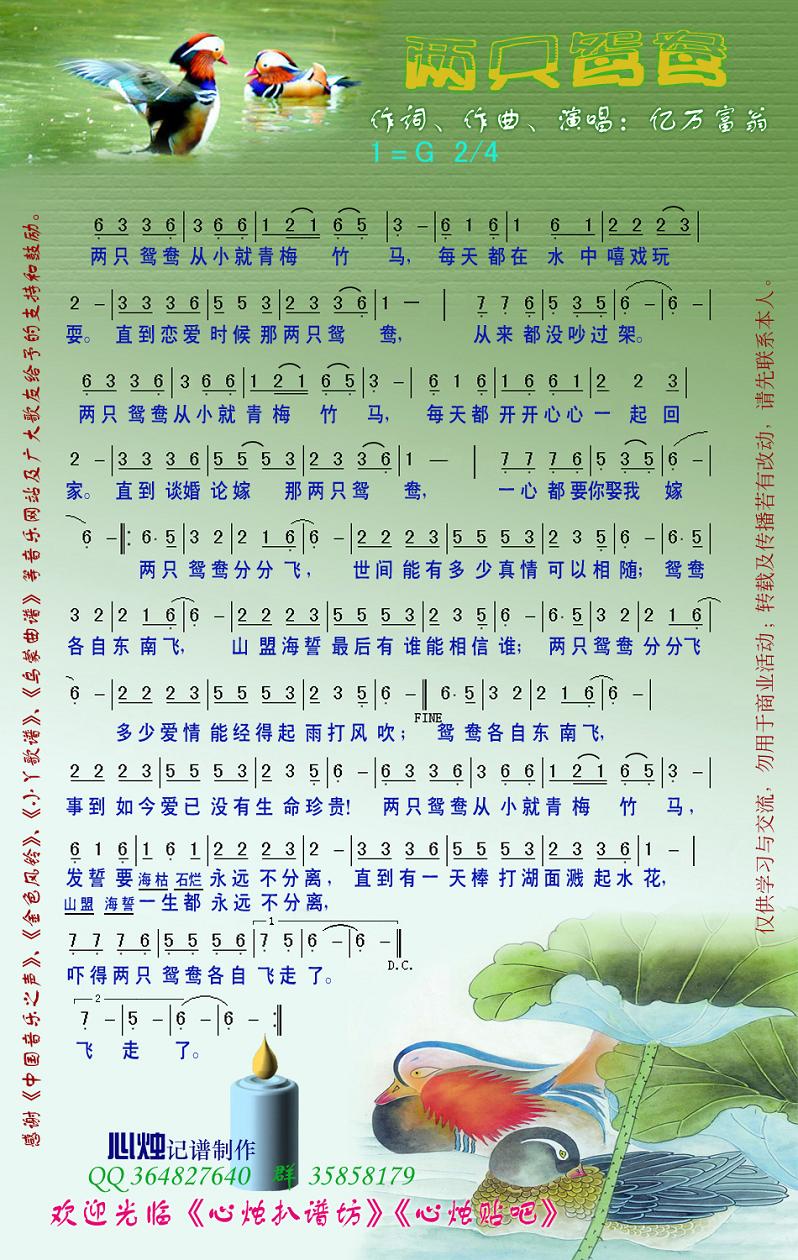 两只鸳鸯
作词、作曲、演唱：亿万富翁
1=G 2/4
6 3 3 6 | 3 6 6 | 1 2 1 6 5 | 3 - | 6 1 6 | 1 6 1 | 2 2 2 3 |
两只 鸳鸯 从小就青梅 竹 马， 每天 都在 水 中 嘻戏玩
2 - | 3 3 3 6 | 5 5 3 | 2 3 3 6 | 1 — | 7 7 6 | 5 3 5 | 6 - | 6 - |
耍。 直到恋爱 时候 那两只鸳 鸯， 从来 都没吵过 架。
6 3 3 6 | 3 6 6 | 1 2 1 6 5 | 3 - | 6 1 6 | 1 6 6 1 | 2 2 3 |
两只 鸳鸯从小就 青梅 竹 马， 每天都 开开心心 一 起 回
2 - | 3 3 3 6 | 5 5 5 3 | 2 3 3 6 | 1 — | 7 7 7 6 | 5 3 5 | 6 - |
家。 直到 谈婚 论嫁 那两只鸳 鸯， 一心 都要你娶我 嫁
6 - ‖: 6· 5 | 3 2 | 2 1 6 | 6 - | 2 2 2 3 | 5 5 5 3 | 2 3 5 | 6 - | 6· 5 |
两只 鸳鸯分分 飞， 世间 能有多 少真情 可以相 随； 鸳鸯
3 2 | 2 1 6 | 6 - | 2 2 2 3 | 5 5 5 3 | 2 3 5 | 6 - | 6· 5 | 3 2 | 2 1 6 |
各自东 南飞， 山 盟海誓 最后有 谁能相信 谁； 两只鸳鸯 分分飞
6 - | 2 2 2 3 | 5 5 5 3 | 2 3 5 | 6 - ‖ 6· 5 | 3 2 | 2 1 6 | 6 - |
FINE
多少爱情 能经得起 雨打风 吹； 鸳 鸯各自东 南飞，
2 2 2 3 | 5 5 5 3 | 2 3 5 | 6 - | 6 3 3 6 | 3 6 6 | 1 2 1 6 5 | 3 - |
事到 如今爱已 没有生 命珍贵！ 两只鸳鸯从 小就青 梅 竹 马，
6 1 6 | 1 6 1 | 2 2 3 2 | 2 - | 3 3 3 6 | 5 5 5 3 | 2 3 3 6 | 1 - |
发誓 要 海枯 石烂 永远 不分离， 直到有一 天棒 打湖面溅 起水 花，
山盟 海誓 一生都 永远 不分离，
7 7 7 6 | 5 5 5 6 | 7 5 | 6 - | 6 - ‖
1
D.C.
吓得两只 鸳鸯各自 飞走 了。
2
7 - | 5 - | 6 - | 6 - :‖
飞 走 了。
心烛记谱制作
QQ 364827640 群 35858179
欢迎光临《心烛扒谱坊》《心烛贴吧》
感谢《中国音乐之声》、《金色风铃》、《小丫歌谱》、《乌蒙曲谱》等音乐网站及广大歌友给予的支持和鼓励。
仅供学习与交流，勿用于商业活动；转载及传播若有改动，请先联系本人。